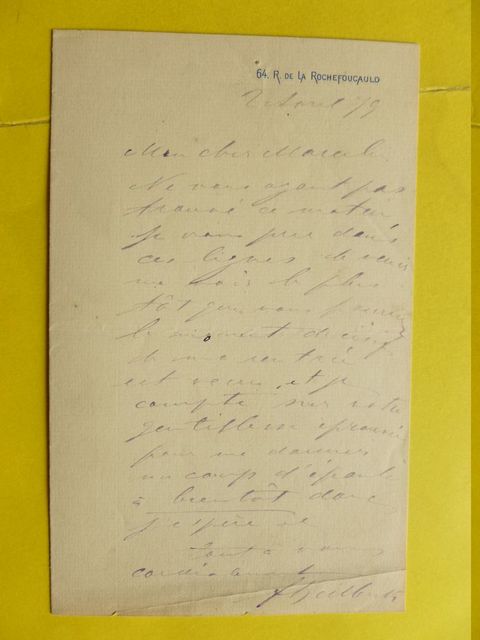 64. R. DE LA ROCHEFOUCAULD
2 Avril 79
Mon cher
Ne vous ayant pas
trouvé ce matin
je vous prie dans
ces lignes de venir
me voir le plus
tôt que vous pourrez
le moment
de ma rentrée
est venu et je
compte sur votre
gentillesse éprouvée
pour me donner
un coup d'épaule
à bientôt donc
j'espère et
tout à vous
cordialement